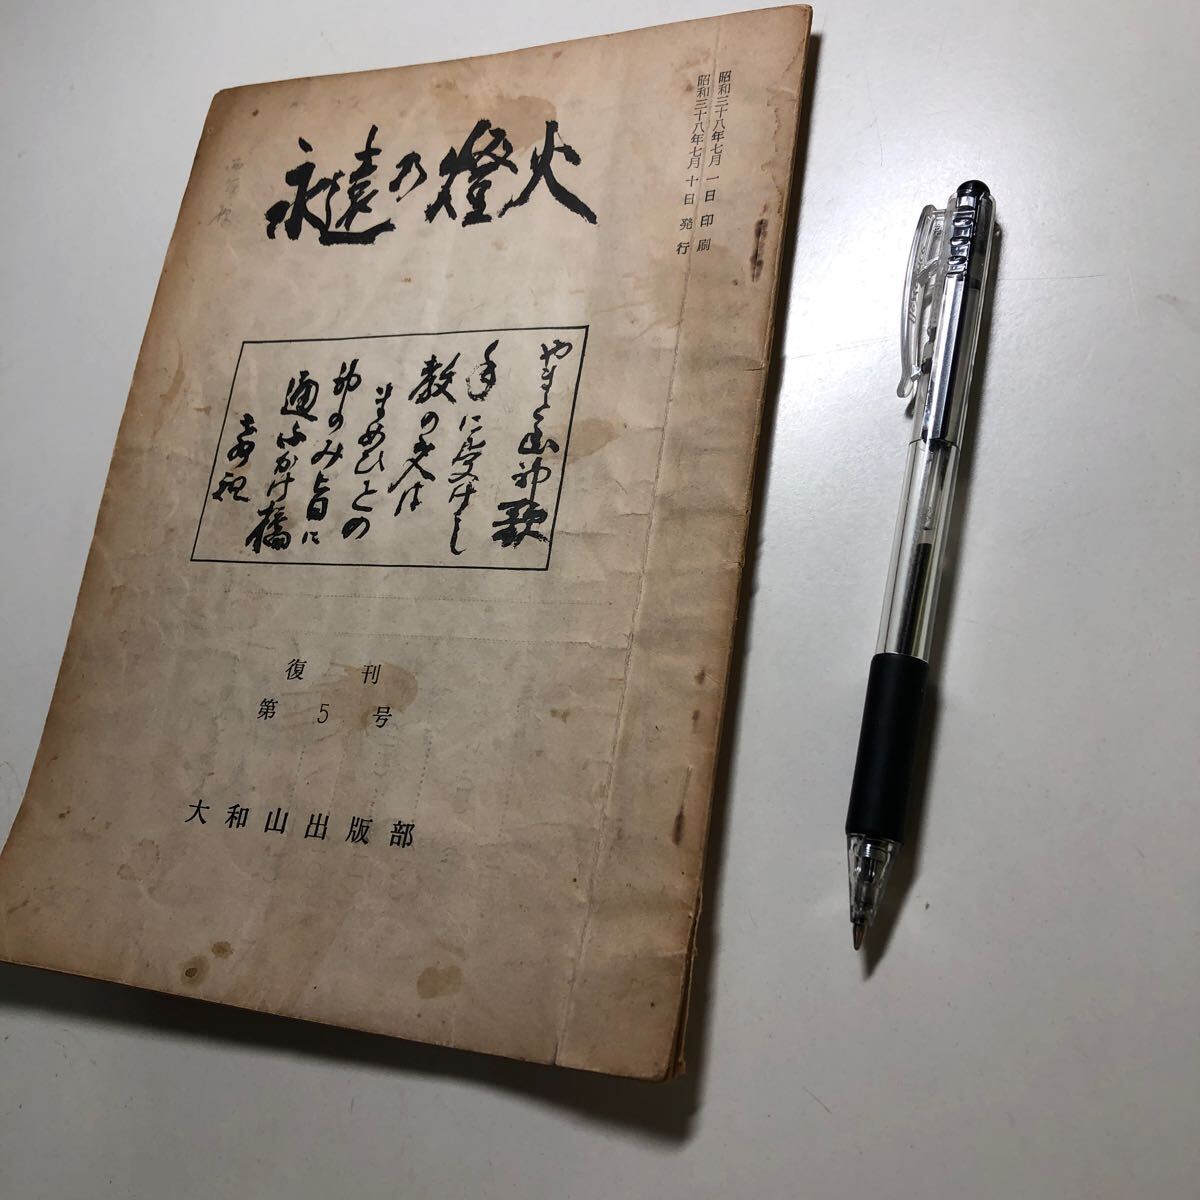 昭和三十八年七月一日印刷
昭和三十八年七月十日発行
永遠の燈火
やまと山神歌
手に受けし
教の文は
まめひとの
神のみ旨に
通ふかけ橋
壽祝
復刊
第5号
大和山出版部